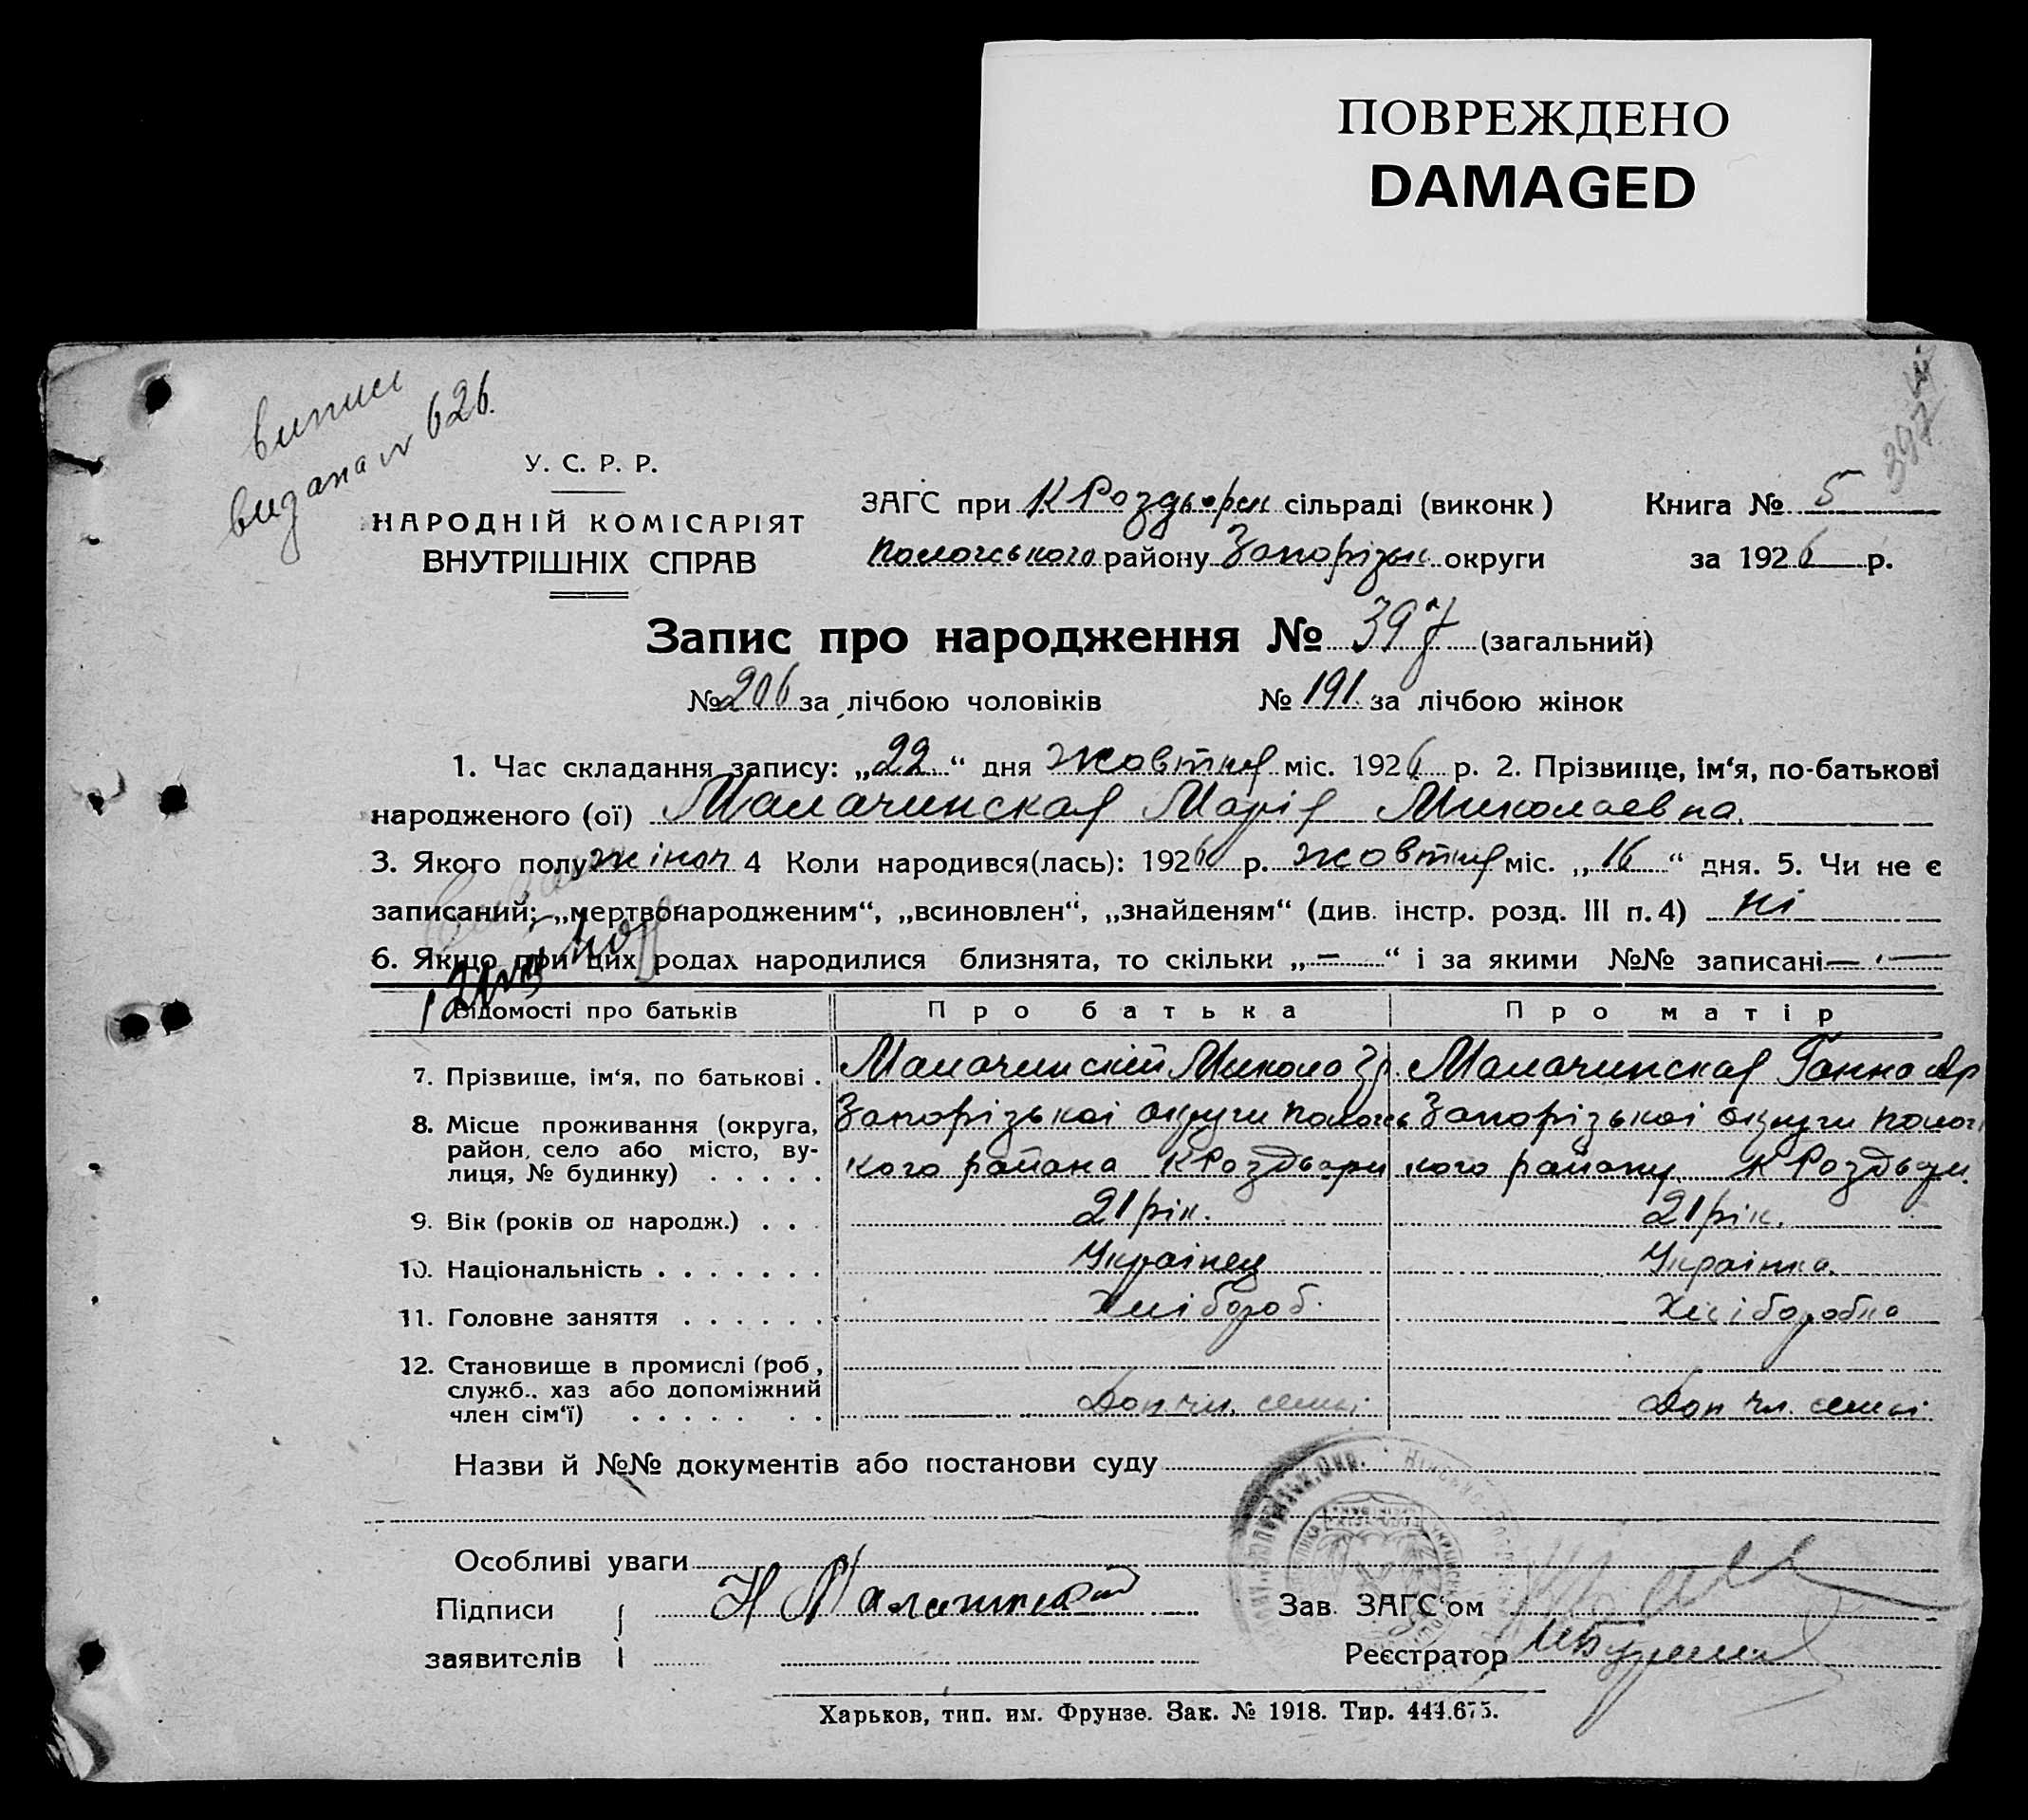 ПОВРЕЖДЕНО
DAMAGED
виписі
видана № 626.
397
У. С. Р. Р.
НАРОДНІЙ КОМІСАРІЯТ
ВНУТРІШНІХ СПРАВ
ЗАГС при К Роздорск сільраді (виконк) Книга № 5
Пологського району Запорізьк округи за 1926 р.
Запис про народження № 397 (загальний)
№ 206 за лічбою чоловіків № 191 за лічбою жінок
1. Час складання запису: „22“ дня жовтня міс. 1926 р. 2. Прізвище, ім‘я, по-батькові
народженого (ої) Малачинская Марія Миколаевна.
3. Якого полу жіноч 4 Коли народився(лась): 1926 р. жовтня міс. „16“ дня. 5. Чи не є
записаний: „мертвонародженим“, „всиновлен“, „знайденям“ (див. інстр. розд. III п. 4) ні
6. Якщо при цих родах народилися близнята, то скільки „—“ і за якими №№ записані —
Відомості про батьків Про батька Про матір
7. Прізвище, ім‘я, по батькові . Малачинский Микола Гр. Малачинская Ганна
8. Місце проживання (округа, Запорізькоі округи Пологсь Запорізькоі округи Полог
район, село або місто, ву-
лиця, № будинку) . . . . . кого района К Роздвори кого району К Роздвори.
9. Вік (років од народж.) . . . 21 рік. 21 рік.
10. Національність . . . . . . . Украінец Украінка.
11. Головне заняття . . . . . . Хлібороб. Хліборобка
12. Становище в промислі (роб,
служб.. хаз або допоміжний
член сім‘ї) . . . . . . . Доп. чл. семьі Доп чл. семьі.
Назви й №№ документів або постанови суду
Особливі уваги
Підписи Н Малачинский Зав. ЗАГС‘ом
заявителів Реєстратор
Харьков, тип. им. Фрунзе. Зак. № 1918. Тир. 444.675.